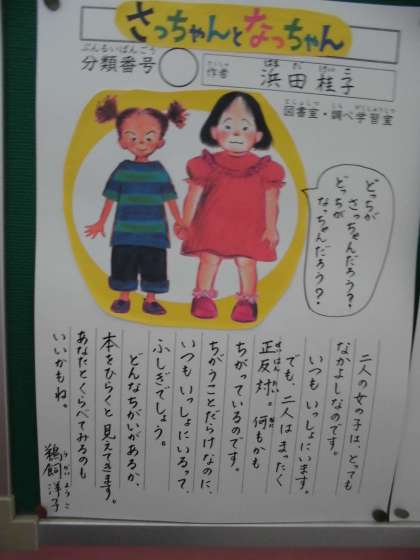 さっちゃんとなっちゃん
ぶんるいばんごう
分類番号
さくしゃ
作者
はまだけいこ
浜田桂子
としょしつ しら がくしゅうしつ
図書室・調べ学習室
どっちが
さっちゃんだろう？
どっちが
なっちゃんだろう？
二人の女の子は、とっても
なかよしなのです。
いつもいっしょにいます。
でも、二人はまったく
せいはんたい なに
正反対。何もかも
ちがっているのです。
ちがうことだらけなのに、
いつもいっしょにいるって、
ふしぎでしょう。
どんなちがいがあるか、
本をひらくと見えてきます。
あなたとくらべてみるのも
いいかもね。
うかいようこ
鵜飼洋子